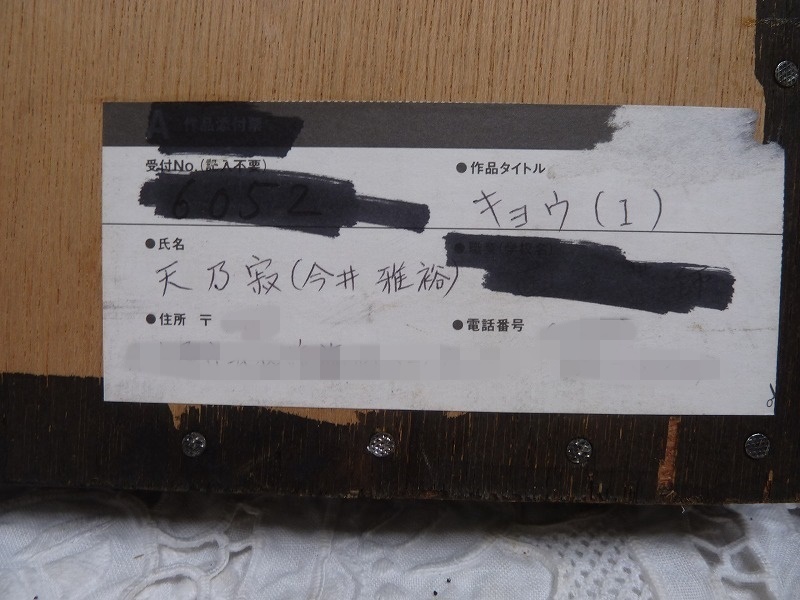 A 作品添付票
受付No.(記入不要)
6052
●作品タイトル
キョウ(I)
●氏名
天乃寂(今井雅裕)
●住所 〒
●電話番号